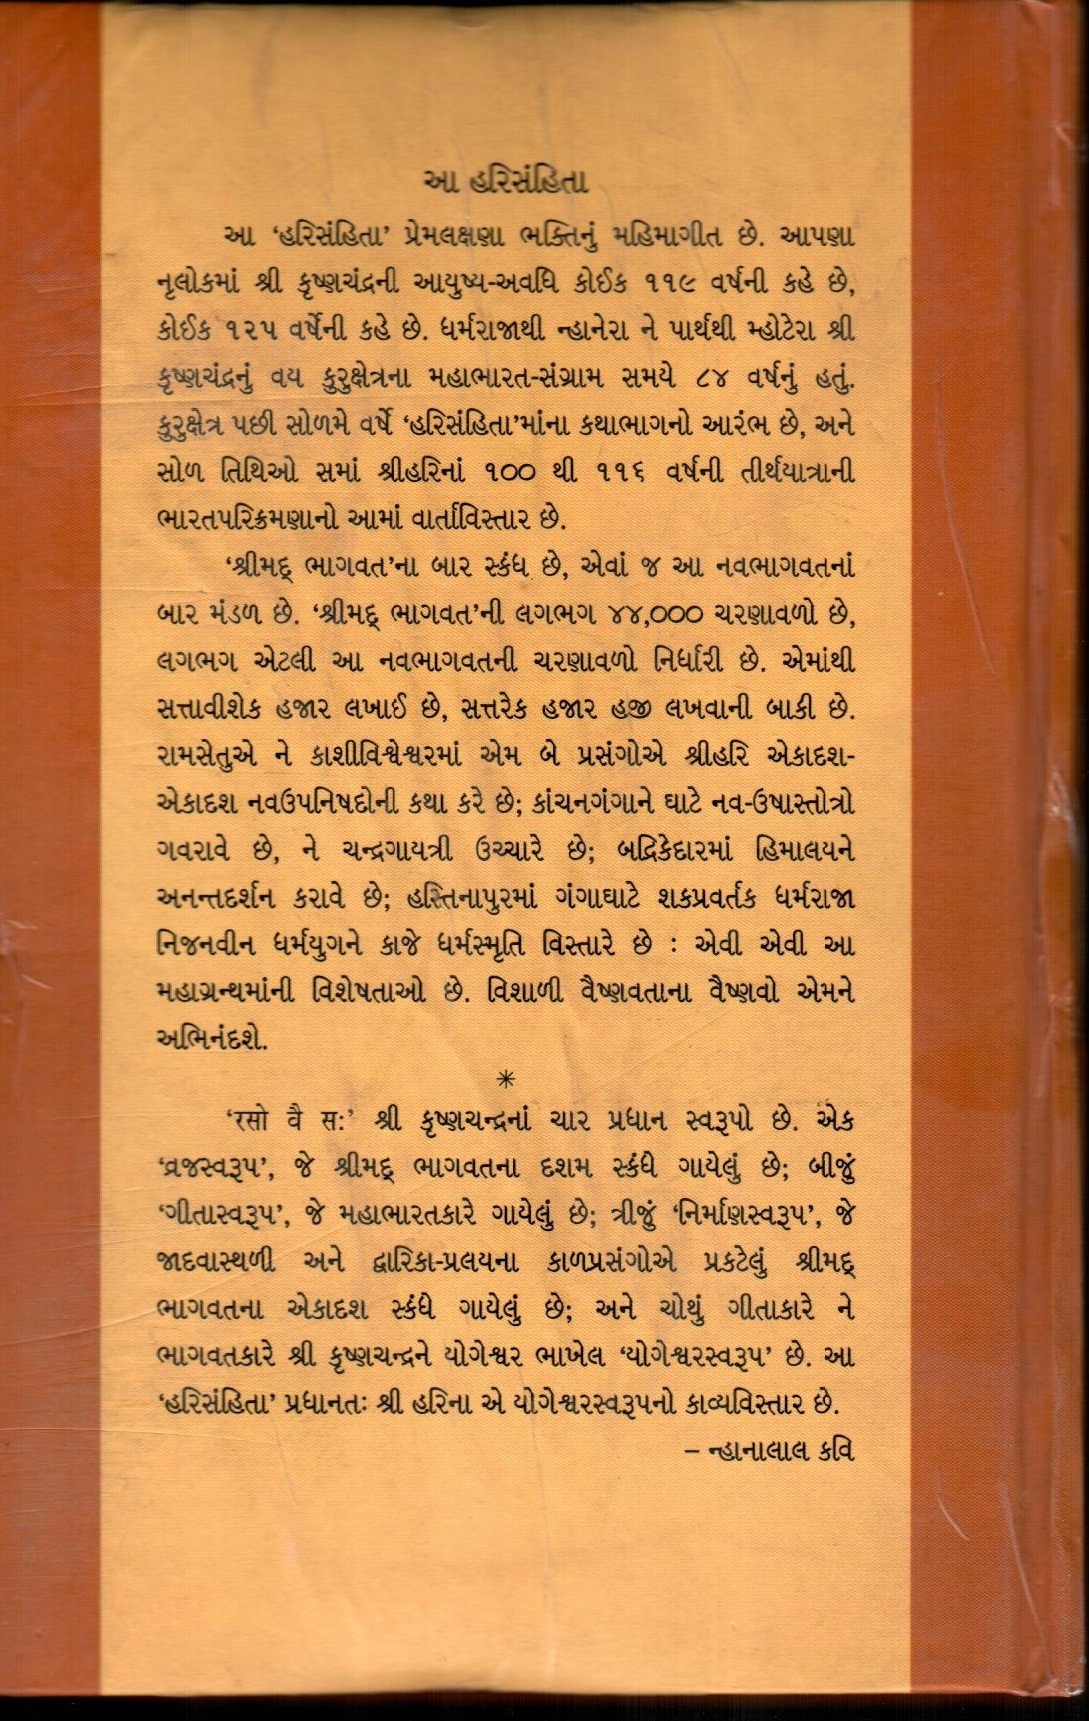 આ હરિસંહિતા
આ ‘હરિસંહિતા’ પ્રેમલક્ષણા ભક્તિનું મહિમાગીત છે. આપણા
નૃલોકમાં શ્રી કૃષ્ણચંદ્રની આયુષ્ય-અવધિ કોઈક ૧૧૯ વર્ષની કહે છે,
કોઈક ૧૨૫ વર્ષેની કહે છે. ધર્મરાજાથી ન્હાનેરા ને પાર્થથી મ્હોટેરા શ્રી
કૃષ્ણચંદ્રનું વય કુરુક્ષેત્રના મહાભારત-સંગ્રામ સમયે ૮૪ વર્ષનું હતું.
કુરુક્ષેત્ર પછી સોળમે વર્ષે ‘હરિસંહિતા’માંના કથાભાગનો આરંભ છે, અને
સોળ તિથિઓ સમાં શ્રીહરિનાં ૧૦૦ થી ૧૧૬ વર્ષની તીર્થયાત્રાની
ભારતપરિક્રમણાનો આમાં વાર્તાવિસ્તાર છે.
‘શ્રીમદ્ ભાગવત’ના બાર સ્કંધ છે, એવાં જ આ નવભાગવતનાં
બાર મંડળ છે. ‘શ્રીમદ્ ભાગવત’ની લગભગ ૪૪,૦૦૦ ચરણાવળો છે,
લગભગ એટલી આ નવભાગવતની ચરણાવળો નિર્ધારી છે. એમાંથી
સત્તાવીશેક હજાર લખાઈ છે, સત્તરેક હજાર હજી લખવાની બાકી છે.
રામસેતુએ ને કાશીવિશ્વેશ્વરમાં એમ બે પ્રસંગોએ શ્રીહરિ એકાદશ-
એકાદશ નવઉપનિષદોની કથા કરે છે; કાંચનગંગાને ઘાટે નવ-ઉષાસ્તોત્રો
ગવરાવે છે, ને ચન્દ્રગાયત્રી ઉચ્ચારે છે; બદ્રિકેદારમાં હિમાલયને
અનન્તદર્શન કરાવે છે; હસ્તિનાપુરમાં ગંગાઘાટે શકપ્રવર્તક ધર્મરાજા
નિજનવીન ધર્મયુગને કાજે ધર્મસ્મૃતિ વિસ્તારે છે : એવી એવી આ
મહાગ્રન્થમાંની વિશેષતાઓ છે. વિશાળી વૈષ્ણવતાના વૈષ્ણવો એમને
અભિનંદશે.
*
‘रसो वै सः’ શ્રી કૃષ્ણચન્દ્રનાં ચાર પ્રધાન સ્વરૂપો છે. એક
‘વ્રજસ્વરૂપ’, જે શ્રીમદ્ ભાગવતના દશમ સ્કંધે ગાયેલું છે; બીજું
‘ગીતાસ્વરૂપ’, જે મહાભારતકારે ગાયેલું છે; ત્રીજું ‘નિર્માણસ્વરૂપ’, જે
જાદવાસ્થળી અને દ્વારિકા-પ્રલયના કાળપ્રસંગોએ પ્રકટેલું શ્રીમદ્
ભાગવતના એકાદશ સ્કંધે ગાયેલું છે; અને ચોથું ગીતાકારે ને
ભાગવતકારે શ્રી કૃષ્ણચન્દ્રને યોગેશ્વર ભાખેલ ‘યોગેશ્વરસ્વરૂપ’ છે. આ
‘હરિસંહિતા’ પ્રધાનતઃ શ્રી હરિના એ યોગેશ્વરસ્વરૂપનો કાવ્યવિસ્તાર છે.
– ન્હાનાલાલ કવિ